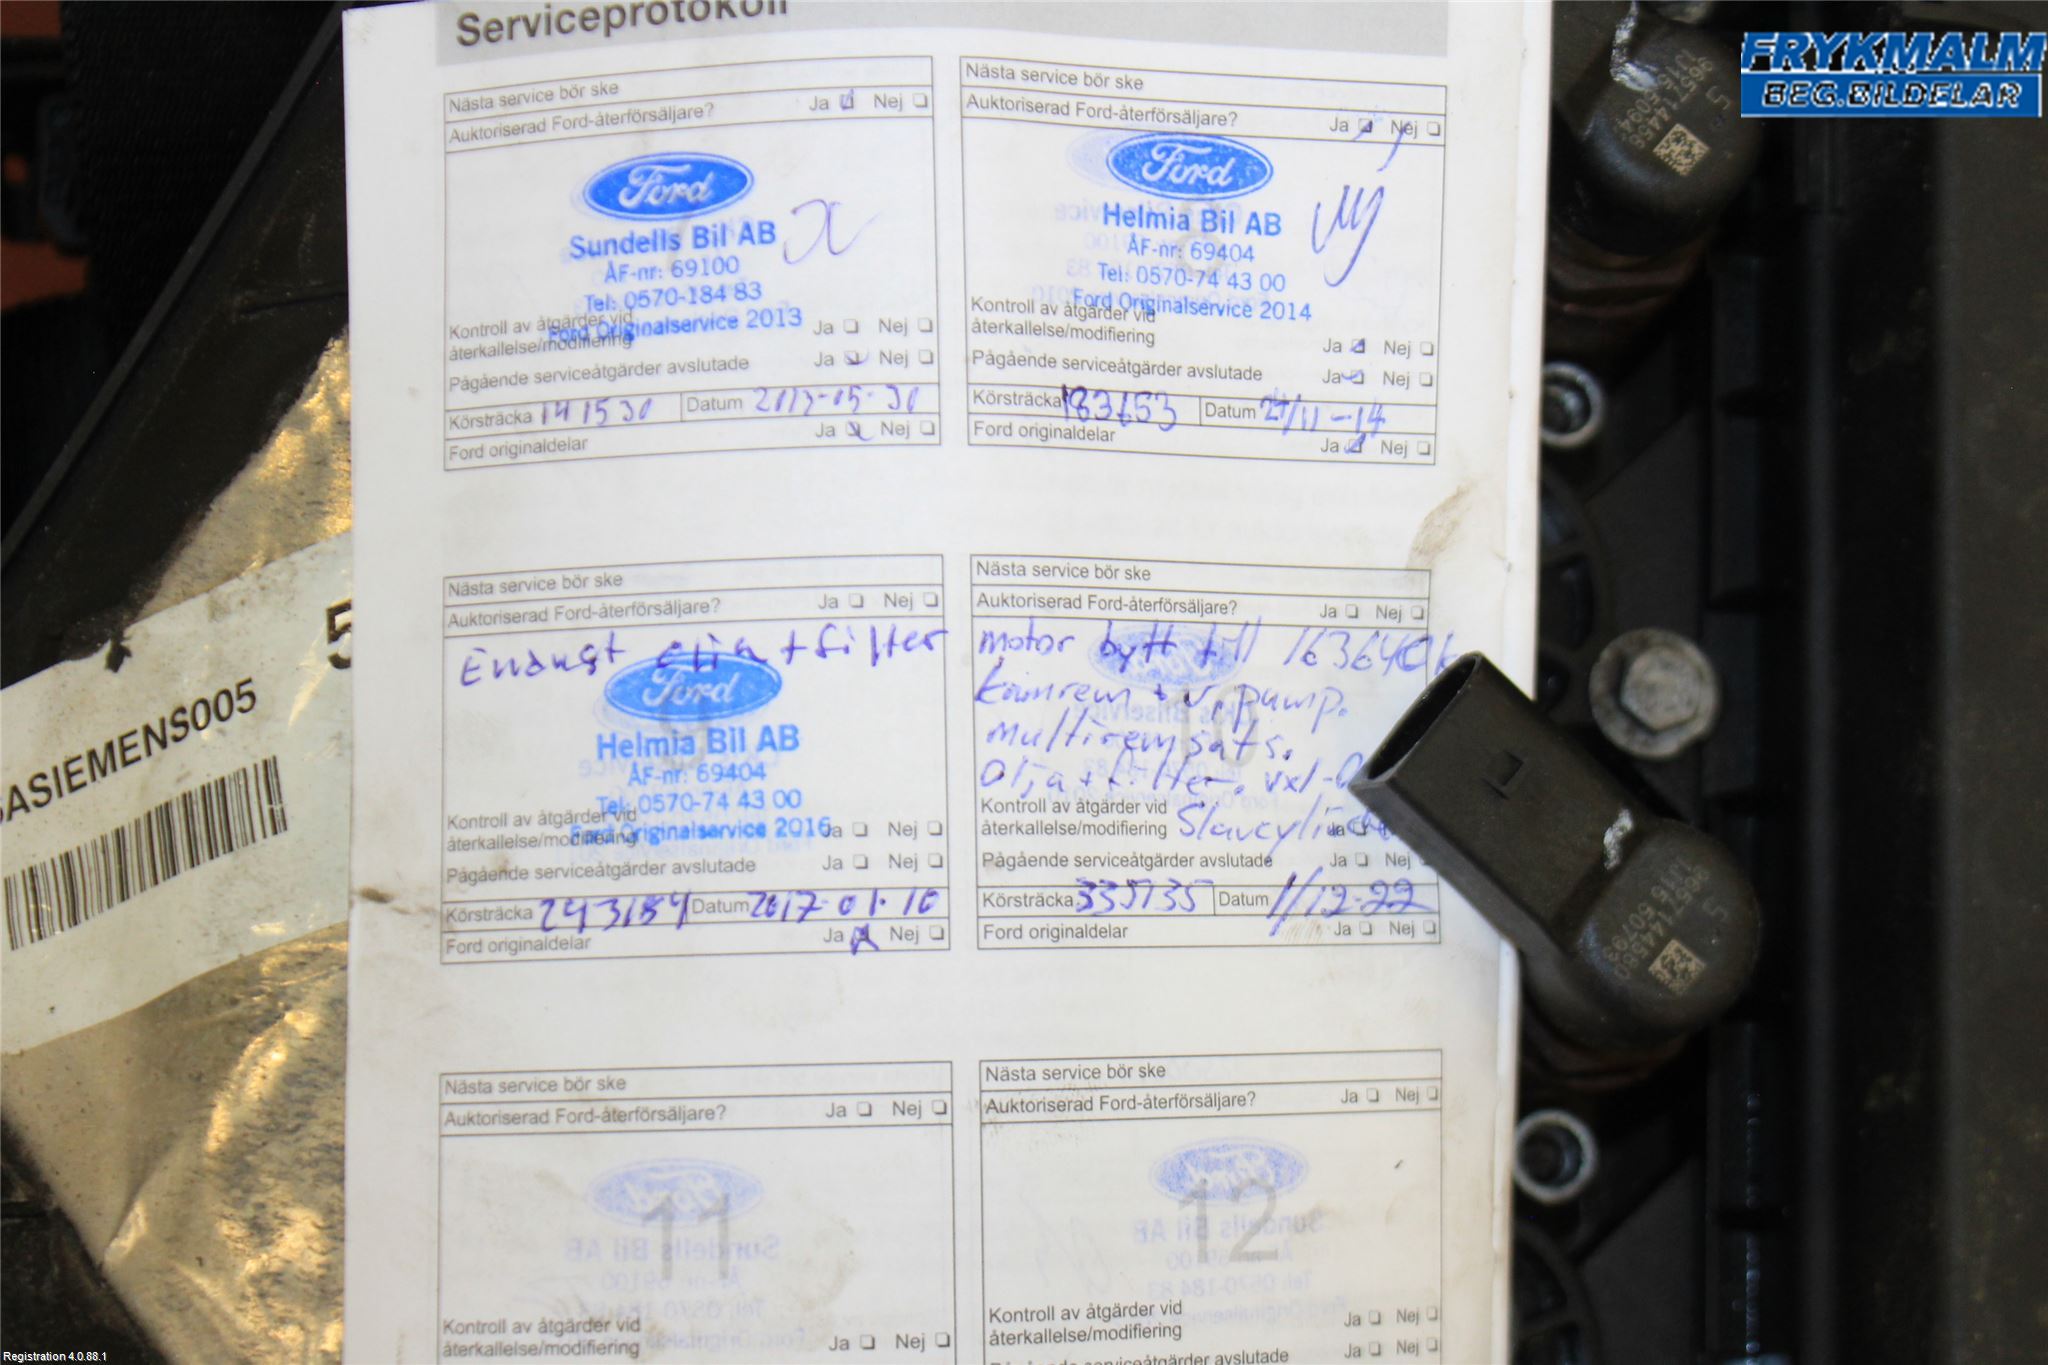 Serviceprotokoll
FRYKMALM
BEG.BILDELAR
Nästa service bör ske
Auktoriserad Ford-återförsäljare? Ja Nej
Ford
Sundells Bil AB
ÅF-nr: 69100
Tel: 0570-184 83
Ford Originalservice 2013
Kontroll av åtgärder vid
återkallelse/modifiering Ja Nej
Pågående serviceåtgärder avslutade Ja Nej
Körsträcka 141530 Datum 2013-05-30
Ford originaldelar Ja Nej
Nästa service bör ske
Auktoriserad Ford-återförsäljare? Ja Nej
Ford
Helmia Bil AB
ÅF-nr: 69404
Tel: 0570-74 43 00
Ford Originalservice 2014
Kontroll av åtgärder vid
återkallelse/modifiering Ja Nej
Pågående serviceåtgärder avslutade Ja Nej
Körsträcka 183653 Datum 24/11-14
Ford originaldelar Ja Nej
Nästa service bör ske
Auktoriserad Ford-återförsäljare? Ja Nej
Endast olja + filter
Ford
Helmia Bil AB
ÅF-nr: 69404
Tel: 0570-74 43 00
Ford Originalservice 2016
Kontroll av åtgärder vid
återkallelse/modifiering Ja Nej
Pågående serviceåtgärder avslutade Ja Nej
Körsträcka 243184 Datum 2017-01-10
Ford originaldelar Ja Nej
Nästa service bör ske
Auktoriserad Ford-återförsäljare? Ja Nej
motor bytt till
kamrem + v,pump.
multiremsats.
Olja + filter.
10
Kontroll av åtgärder vid
återkallelse/modifiering Ja
Pågående serviceåtgärder avslutade Ja Nej
Körsträcka 335735 Datum 1/12-22
Ford originaldelar Ja Nej
Nästa service bör ske
Auktoriserad Ford-återförsäljare? Ja Nej
11
Kontroll av åtgärder vid
återkallelse/modifiering Ja Nej
Nästa service bör ske
Auktoriserad Ford-återförsäljare? Ja Nej
12
Kontroll av åtgärder vid
återkallelse/modifiering Ja Nej
Pågående serviceåtgärder avslutade Ja Nej
ASIEMENS005
5
9657144580
Registration 4.0.88.1